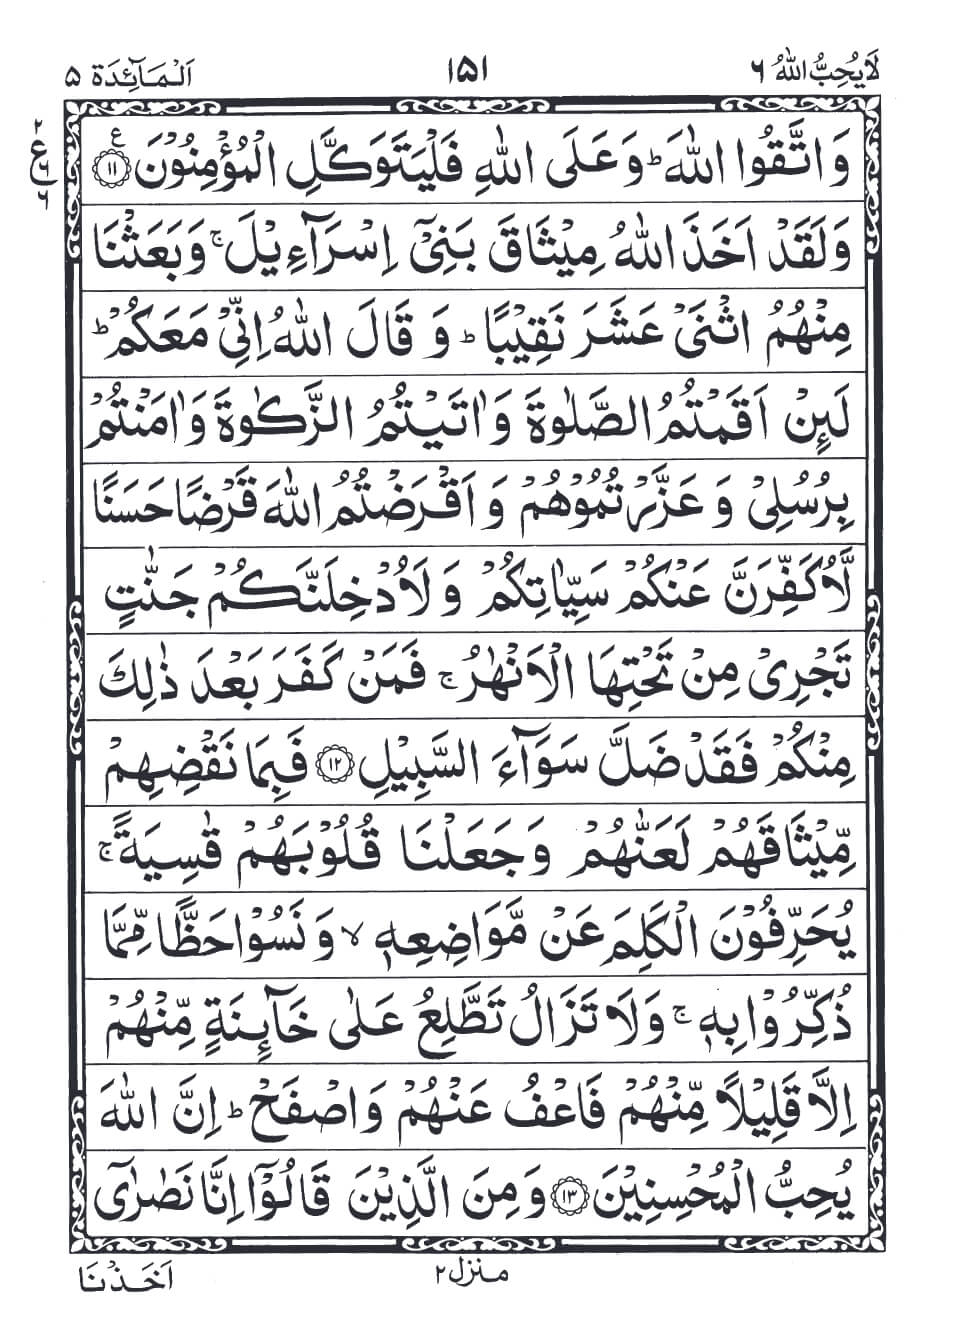 لَا يُحِبُّ اللّٰهُ ٦ ١٥١ اَلْمَآئِدَة ٥
وَ اتَّقُوا اللّٰهَ ؕ وَ عَلَى اللّٰهِ فَلْيَتَوَكَّلِ الْمُؤْمِنُوْنَ ࣖ ﴿١١﴾
٢
ع
٦
٦
وَ لَقَدْ اَخَذَ اللّٰهُ مِيْثَاقَ بَنِيْۤ اِسْرَآءِيْلَ ۚ وَ بَعَثْنَا
مِنْهُمُ اثْنَيْ عَشَرَ نَقِيْبًا ؕ وَ قَالَ اللّٰهُ اِنِّيْ مَعَكُمْ ؕ
لَىِٕنْ اَقَمْتُمُ الصَّلٰوةَ وَ اٰتَيْتُمُ الزَّكٰوةَ وَ اٰمَنْتُمْ
بِرُسُلِيْ وَ عَزَّرْتُمُوْهُمْ وَ اَقْرَضْتُمُ اللّٰهَ قَرْضًا حَسَنًا
لَّاُكَفِّرَنَّ عَنْكُمْ سَيِّاٰتِكُمْ وَ لَاُدْخِلَنَّكُمْ جَنّٰتٍ
تَجْرِيْ مِنْ تَحْتِهَا الْاَنْهٰرُ ۚ فَمَنْ كَفَرَ بَعْدَ ذٰلِكَ
مِنْكُمْ فَقَدْ ضَلَّ سَوَآءَ السَّبِيْلِ ﴿١٢﴾ فَبِمَا نَقْضِهِمْ
مِّيْثَاقَهُمْ لَعَنّٰهُمْ وَ جَعَلْنَا قُلُوْبَهُمْ قٰسِيَةً ۚ
يُحَرِّفُوْنَ الْكَلِمَ عَنْ مَّوَاضِعِهٖ ۙ وَ نَسُوْا حَظًّا مِّمَّا
ذُكِّرُوْا بِهٖ ۚ وَ لَا تَزَالُ تَطَّلِعُ عَلٰى خَآىِٕنَةٍ مِّنْهُمْ
اِلَّا قَلِيْلًا مِّنْهُمْ فَاعْفُ عَنْهُمْ وَ اصْفَحْ ؕ اِنَّ اللّٰهَ
يُحِبُّ الْمُحْسِنِيْنَ ﴿١٣﴾ وَ مِنَ الَّذِيْنَ قَالُوْۤا اِنَّا نَصٰرٰۤى
منزل ٢
اَخَذْنَا